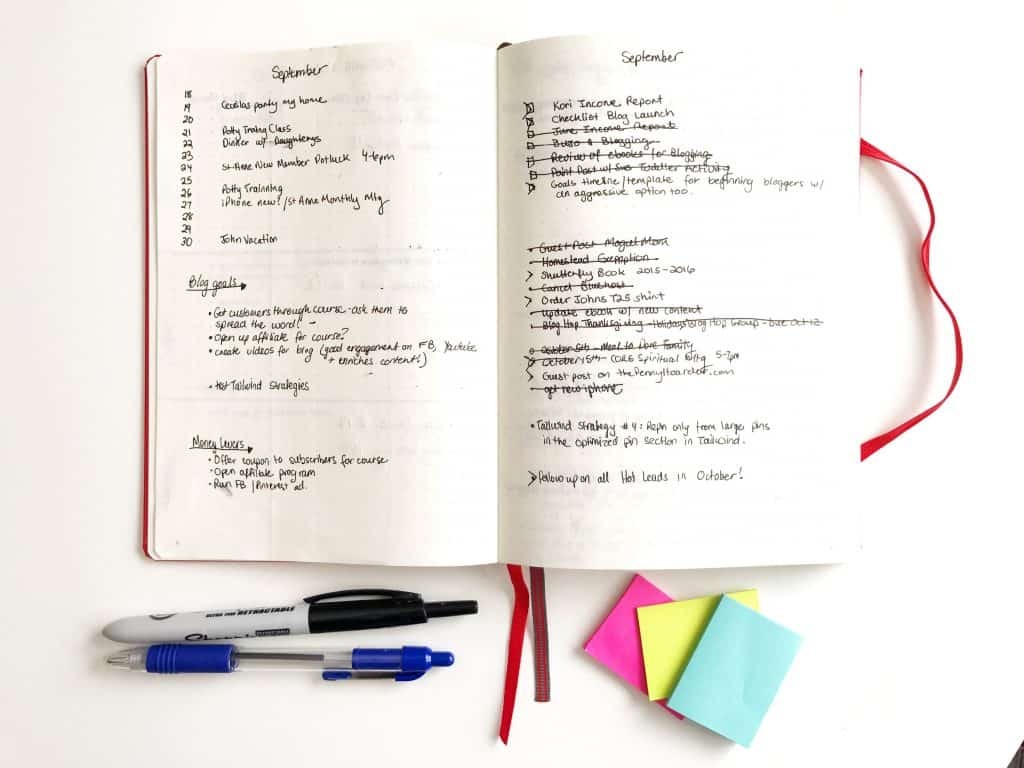 September
18
19 Cecilias party my home
20
21 Potty Traing Class
22 Dinner w/ Daughterys
23
24 St Anne New Member Potluck 4-6pm
25
26 Potty Trainning
27 iPhone new?/St Anne Monthly Mtg
28
29
30 John Vacation
Blog goals
• Get customers through course - ask them to
spread the word! -
• Open up affiliate for course?
• create videos for blog (good engagement on FB, Youtube
+ enriches contents)
• Hot Tailwind Strategies
Money Levers
• Offer coupon to subscribers for course
• Open affiliate program
• Run FB/Pinterest ad.
September
Kori Income Report
Checklist Blog Launch
June Income Report
Bujo & Blogging
Review of ebooks for Blogging
Paint Post w/ Toddler Activity
Goals timeline/template for beginning bloggers w/
an aggressive option too.
• Guest Post Mom
• Homestead Exemption
> Shutterfly Book 2015-2016
• Cancel Bluehost
> Order Johns T25 shirt
• update ebook w/ new content
• Blog Hop Thanksgiving - Holidays Blog Hop Group - Due Oct 12
• October 5th - Meal to Family
> October 15th - CORE Spiritual Mtg 5-7pm
> Guest post on thePennyHoarder.com
• get new iphone
• Tailwind Strategy #4: Repin only from large pins
in the optimized pin section in Tailwind.
> Follow up on all Hot Leads in October!
ULTRA FINE RETRACTABLE
Sharpie